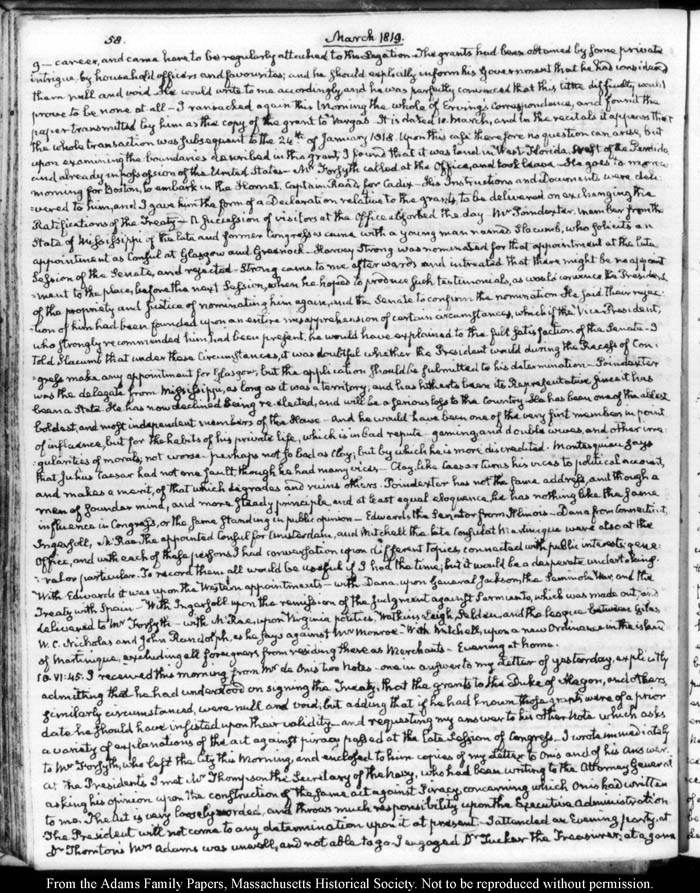 58.
March 1819.
9 — career, and came here to be regularly attached to the Legation. The grants had been obtained by some private
intrigue, by household officers and favourites; and he should explicitly inform his Government that he had considered
them null and void. He would write to me accordingly, and he was perfectly convinced that this little difficulty would
prove to be none at all — I ransacked again this Morning the whole of Erving's correspondence, and found the
paper transmitted by him as the copy of the grant to Vargas. It is dated 10. March, and in the recitals it appears that
the whole transaction was subsequent to the 24th of January 1818. Upon this case therefore no question can arise, but
upon examining the boundaries described in the grant, I found that it was land in West Florida, West of the Perdido,
and already in possession of the United States — Mr Forsyth called at the Office, and took leave. He goes to-morrow
morning for Boston, to embark in the Hornet, Captain Read, for Cadiz — His Instructions and Documents were deli-
vered to him, and I gave him the form of a Declaration relative to the grants, to be delivered on exchanging the
Ratifications of the Treaty — A succession of visitors at the Office absorbed the day. Mr Poindexter, member from the
State of Mississippi of the late and former Congresses came with a young man named Slocumb, who solicits an
appointment as Consul at Glasgow and Greenock — Harvey Strong was nominated for that appointment at the late
Session of the Senate, and rejected — Strong came to me afterwards and intreated that there might be no appoint
-ment to the place, before the next Session, when he hoped to produce such testimonials, as would convince the President
of the propriety and Justice of nominating him again, and the Senate to confirm the nomination. He said their rejec-
-tion of him had been founded upon an entire misapprehension of certain circumstances, which if the Vice-President,
who strongly recommended him had been present, he would have explained to the full satisfaction of the Senate — I
told Slacumb that under these Circumstances, it was doubtful whether the President would during the Recess of Con-
-gress make any appointment for Glasgow; but the application should be submitted to his determination — Poindexter
was the delegate from Mississippi, as long as it was a territory; and has hitherto been its Representative since it has
been a State. He has now declined being re-elected, and will be a serious loss to the Country. He has been one of the ablest
boldest, and most independent members of the House — And he would have been one of the very first members in point
of influence, but for the habits of his private life, which is in bad repute — gaming, and double wives, and other irre-
-gularities of morals; not worse perhaps nor so bad as Clay; but by which he is more discredited. Montesquieu says
that Julius Caesar had not one fault, though he had many vices — Clay, like Caesar turns his vices to political account,
and makes a merit, of that which degrades and ruins others. Poindexter has not the same address, and though a
man of sounder mind, and more steady principle, and at least equal eloquence, he has nothing like the same
influence in Congress, or the same standing in public opinion — Edwards the Senator from Illinois — Dana from Connecticut,
Ingersoll, McRae, the appointed Consul for Amsterdam, and Mitchell the late Consul at Martinique were also at the
Office, and with each of these persons I had conversation upon different topics, connected with public interests gene
-ral or particular. To record them all would be useful if I had the time; but it would be a desperate undertaking.
With Edwards it was upon the Western appointments — with Dana, upon General Jackson, the Seminole War, and the
Treaty with Spain — With Ingersoll upon the remission of the Judgment against Sarmiento, which was made out, and
delivered to Mr Forsyth — with McRae, upon Virginia politics, Watkins Leigh, Selden, and the league between Giles,
W. C. Nicholas and John Randolph, as he says against Mr Monroe — With Mitchell, upon a new Ordinance in the island
of Martinique, excluding all foreigners from residing there as Merchants — Evening at home.
10. VI:45. I received this morning from Mr de Onis two Notes — one in answer to my Letter of yesterday, explicitly
admitting that he had understood on signing the Treaty, that the grants to the Duke of Alagon, and others,
similarly circumstanced, were null and void; but adding that if he had known those grants were of a prior
date he should have insisted upon their validity — and requesting my answer to his other Note which asks
a variety of explanations of the act against piracy passed at the late Session of Congress. I wrote immediately
to Mr Forsyth, who left the City this Morning, and enclosed to him copies of my Letter to Onis and of his Answer.
At the President's I met Mr Thompson the Secretary of the Navy, who had been writing to the Attorney General
asking his opinion upon the construction of the same act against Piracy concerning which Onis had written
to me. The Act is very loosely worded, and throws much responsibility upon the Executive Administration.
The President will not come to any determination upon it at present. I attended an Evening party, at
Dr Thornton's. Mrs Adams was unwell, and not able to go. I engaged Dr Tucker the Treasurer, at a game
From the Adams Family Papers, Massachusetts Historical Society. Not to be reproduced without permission.